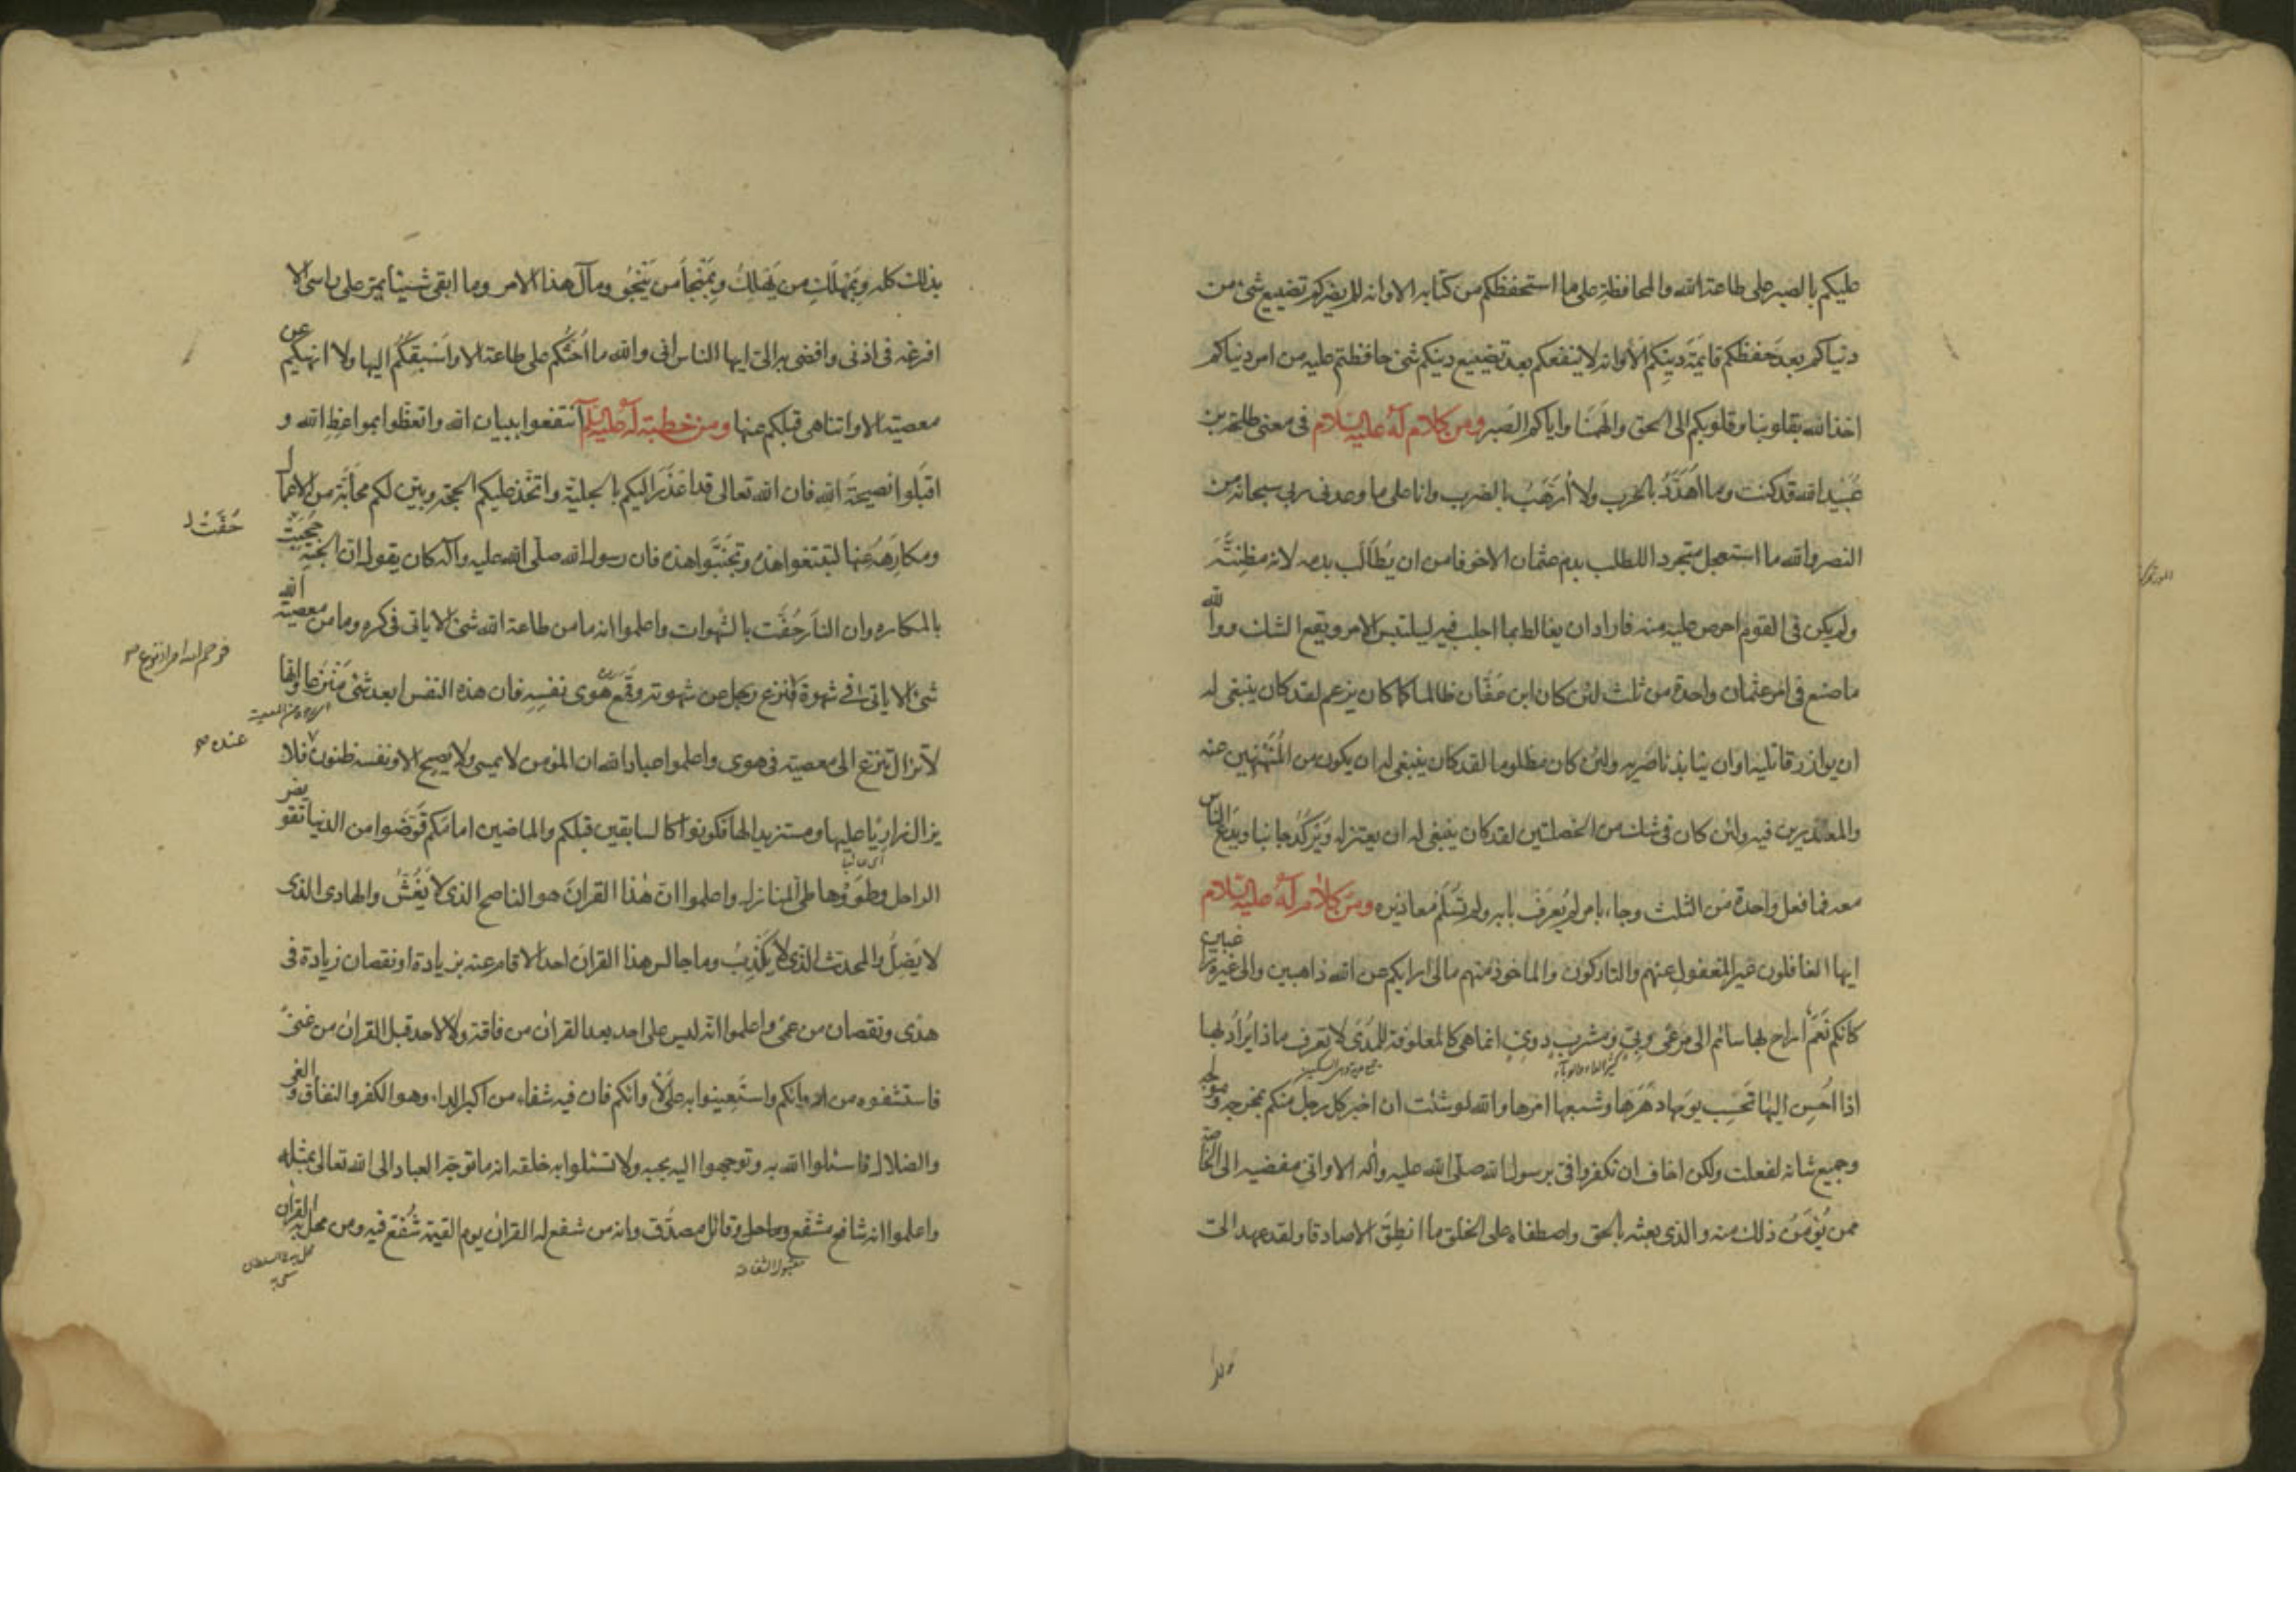 عليكم بالصبر على طاعة الله والمحافظة على ما استحفظكم من كتابه الا وانه لا يضركم تضييع شئ من
دنياكم بعد حفظكم قايمة دينكم الا وانه لا ينفعكم بعد تضييع دينكم شئ حافظتم عليه من امر دنياكم
اخذ الله بقلوبنا وقلوبكم الى الحق والهمنا واياكم الصبر ومن كلام له عليه السلام فى معنى طلحة بن
عبيد الله قد كنت وما اهدد بالحرب ولا ارهب بالضرب وانا على ما وعدنى ربى سبحانه من
النصر والله ما استعجل متجردا للطلب بدم عثمان الا خوفا من ان يطالب بدمه لانه مظنته
ولم يكن فى القوم احرص عليه منه فاراد ان يغالط بما اجلب فيه ليلتبس الامر ويقع الشك ووالله
ما صنع فى امر عثمان واحدة من ثلث لئن كان ابن عفان ظالما كما كان يزعم لقد كان ينبغى له
ان يوازر قاتليه او ان ينابذ ناصريه ولئن كان مظلوما لقد كان ينبغى له ان يكون من المنهنهين عنه
والمعذرين فيه ولئن كان فى شك من الخصلتين لقد كان ينبغى له ان يعتزله ويركد جانبا ويدع الناس
معه فما فعل واحدة من الثلث وجاء بامر لم يعرف بابه ولم تسلم معاذيره ومن كلام له عليه السلام
ايها الغافلون غير المغفول عنهم والتاركون والماخوذ منهم مالى اراكم عن الله ذاهبين والى غيره راغبين
كانكم نعم اراح بها سائم الى مرعى وبى ومشرب دوى انما هى كالمعلوفة للمدى لا تعرف ماذا يراد بها
اذا احسن اليها تحسب يومها دهرها وشبعها امرها والله لو شئت ان اخبر كل رجل منكم بمخرجه ومولجه
وجميع شانه لفعلت ولكن اخاف ان تكفروا فى برسول الله صلى الله عليه واله الا وانى مفضيه الى الخاصة
ممن يؤمن ذلك منه والذى بعثه بالحق واصطفاه على الخلق ما انطق الا صادقا ولقد عهد الى
بذلك كله وبمهلك من يهلك وبمنجا من ينجو ومآل هذا الامر وما ابقى شيئا يمر على راسى الا
افرغه فى اذنى وافضى به الى ايها الناس انى والله ما احثكم على طاعة الا واسبقكم اليها ولا انهيكم عن
معصية الا واتناهى قبلكم عنها ومن خطبة له عليه السلم انتفعوا ببيان الله واتعظوا بمواعظ الله و
اقبلوا نصيحة الله فان الله تعالى قد اعذر اليكم بالجلية واتخذ عليكم الحجة وبين لكم محابه من الاعمال
ومكارهه منها لتبتغوا هذه وتجتنبوا هذه فان رسول الله صلى الله عليه وآله كان يقول ان الجنة حجبت
حفت
بالمكاره وان النار حفت بالشهوات واعلموا انه ما من طاعة الله شئ الا ياتى فى كره وما من معصية الله
فرحم الله امرا نزع
شئ الا ياتى فى شهوة فنزع رجل عن شهوته وقمع هوى نفسه فان هذه النفس ابعد شئ منزعا وانها
لا تزال تنزع الى معصية فى هوى واعلموا عباد الله ان المؤمن لا يمسى ولا يصبح الا ونفسه ظنون فلا
عنده
يزال زاريا عليها ومستزيدا لها فكونوا كالسابقين قبلكم والماضين امامكم قوضوا من الدنيا تقويض
الراحل وطووها طى المنازل واعلموا ان هذا القران هو الناصح الذى لا يغش والهادى الذى
لا يضل والمحدث الذى لا يكذب وما جالس هذا القران احد الا قام عنه بزيادة او نقصان زيادة فى
هدى ونقصان من عمى واعلموا انه ليس على احد بعد القران من فاقة ولا لاحد قبل القران من غنى
فاستشفوه من ادوائكم واستعينوا به على لاوائكم فان فيه شفاء من اكبر الداء وهو الكفر والنفاق والغى
والضلال فاسئلوا الله به وتوجهوا اليه بحبه ولا تسئلوا به خلقه انه ما توجه العباد الى الله تعالى بمثله
واعلموا انه شافع مشفع وماحل وقائل مصدق وانه من شفع له القران يوم القيمة شفع فيه ومن محل به القران
مقبول الشفاعة